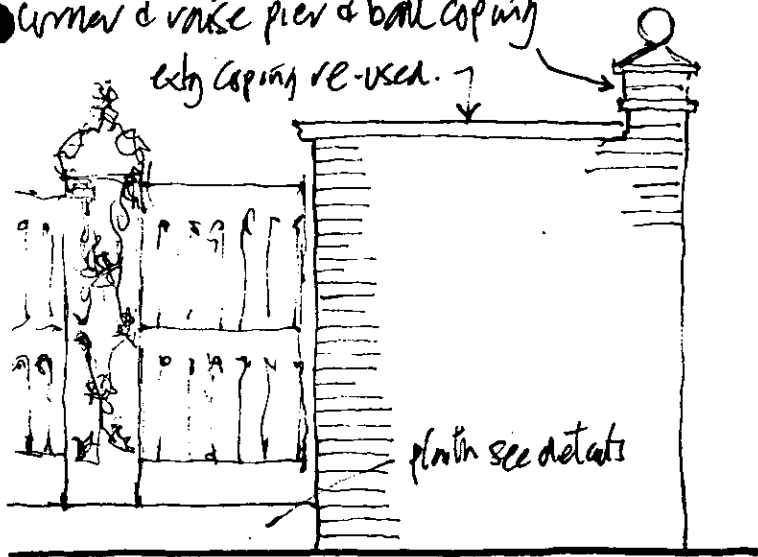 corner & raise pier & ball coping
extg coping re-used.
plinth see details